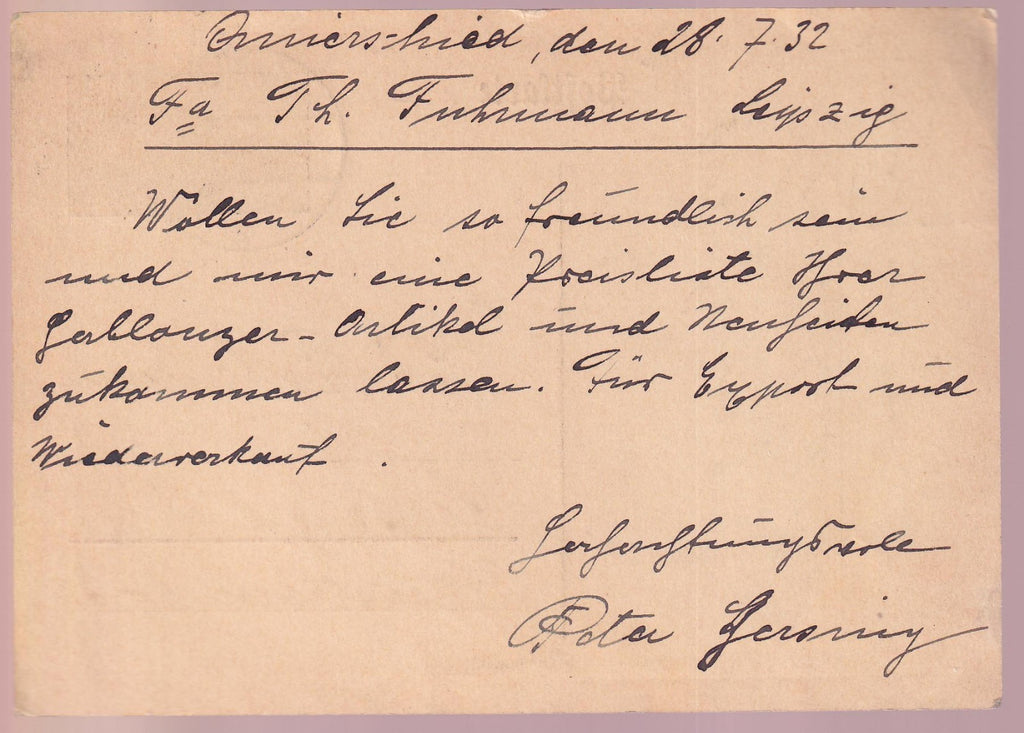 den 28. 7. 32
Fa Th. Fuhrmann Leipzig
Wollen Sie so freundlich sein
und mir eine Preisliste Ihrer
Gablonzer-Artikel und Neuheiten
zukommen lassen. Für Export und
Wiederverkauf.
Hochachtungsvoll
Peter